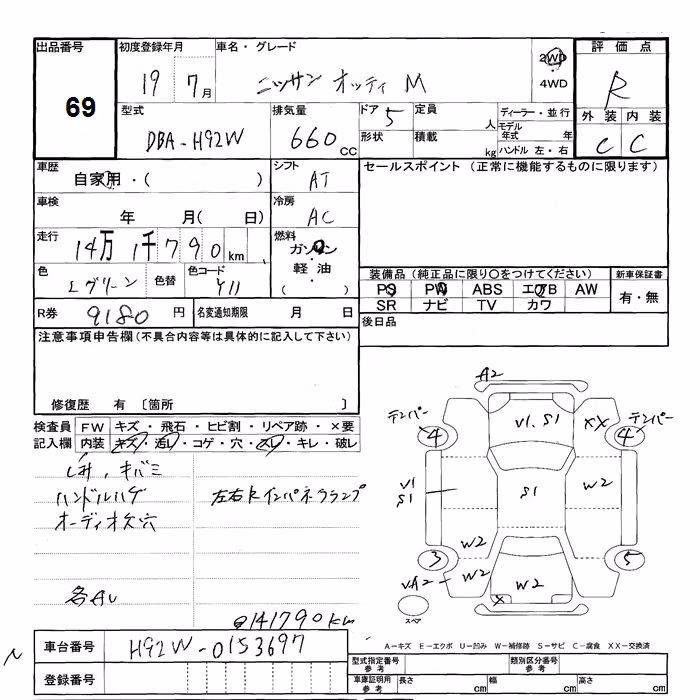 出品番号 69
初度登録年月 19 7月
車名・グレード ニッサン オッティ M
2WD
4WD
評価点 R
型式 DBA-H92W
排気量 660 CC
ドア 5
定員 人
ディーラー・並行
モデル年式 年
形状
積載 kg
ハンドル 左・右
外装 C
内装 C
車歴 自家用・( )
シフト AT
セールスポイント (正常に機能するものに限ります)
車検 年 月( 日)
冷房 AC
走行 14万1千790km
燃料 ガソリン・軽油・( )
色
グリーン
色替
色コード
装備品 (純正品に限り○をつけてください)
新車保証書
PS PW ABS エアB AW
有・無
SR ナビ TV カワ
R券 9180 円
名変通知期限 月 日
後日品
注意事項申告欄 (不具合内容等は具体的に記入して下さい)
修復歴 有 〔箇所 〕
検査員 FW キズ・飛石・ヒビ割・リペア跡・×要
記入欄 内装 キズ・汚レ・コゲ・穴・スレ・キレ・破レ
キバミ
ハンドルハゲ
左右Fインパネクランプ
オーディオ欠穴
@141790km
A2
テンパー
4
V1.S1
XX
テンパー
4
V1
S1
S1
W2
W2
3
5
VA2
W2
W2
X
スペア
A-キズ E-エクボ U-凹み W-補修跡 S-サビ C-腐食 XX-交換済
車台番号 H92W-0153697
登録番号
型式指定番号 参考
類別区分番号 参考
車庫証明用 参考
長さ cm
幅 cm
高さ cm